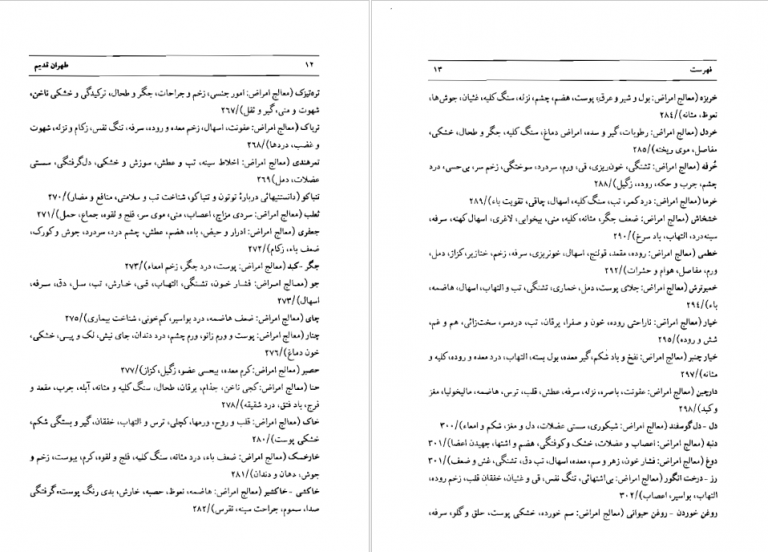 ۱۲ طهران قدیم
تره‌تیزک (معالج امراض: امور جنسی، زخم و جراحات، جگر و طحال، ترکیدگی و خشکی ناخن،
شهوت و منی، گیر و ثقل)/۲۶۷
تریاک (معالج امراض: عفونت، اسهال، زخم معده و روده، سرفه، تنگ نفس، زکام و نزله، شهوت
و غضب، دردها)/۲۶۸
تمرهندی (معالج امراض: اخلاط سینه، تب و عطش، سوزش و خشکی، دل‌گرفتگی، سستی
عضلات، دمل)۲۶۹
تنباکو (دانستنیهائی دربارهٔ توتون و تنباکو، شناخت تب و سلامتی، منافع و مضار)/۲۷۰
ثعلب (معالج امراض: سردی مزاج، اعصاب، منی، موی سر، فلج و لقوه، جماع، حمل)/۲۷۱
جعفری (معالج امراض: ادرار و حیض، باه، هضم، عطش، چشم درد، سردرد، جوش و کورک،
ضعف باه، زکام)/۲۷۲
جگر - کبد (معالج امراض: پوست، درد جگر، زخم امعاء)/۲۷۳
جو (معالج امراض: فشار خون، تشنگی، التهاب، قی، خارش، تب، سل، دق، سرفه،
اسهال)/۲۷۳
چای (معالج امراض: ضعف هاضمه، درد بواسیر، کم‌خونی، شناخت بیماری)/۲۷۵
چنار (معالج امراض: پوست و ورم زانو، ورم چشم، درد دندان، جای نیش، لک و پیس، خشکی،
خون دماغ)/۲۷۶
حصیر (معالج امراض: کرم معده، بیحسی عضو، زگیل، کزاز)/۲۷۷
حنا (معالج امراض: کجی ناخن، جذام، یرقان، طحال، سنگ کلیه و مثانه، آبله، جرب، مقعد و
فرج، باد فتق، درد شقیقه)/۲۷۸
خاک (معالج امراض: قلب و روح، ورمها، کچلی، ترس و التهاب، خفقان، گیر و بستگی شکم،
خشکی پوست)/۲۸۰
خارخسک (معالج امراض: ضعف باه، درد مثانه، سنگ کلیه، فلج و لقوه، کرم، یبوست، زخم و
جوش، دهان و دندان)/۲۸۱
خاکشی - خاکشیر (معالج امراض: هاضمه، نعوظ، حصبه، خارش، بدی رنگ پوست، گرفتگی
صدا، سموم، جراحت سینه، نقرس)/۲۸۲
فهرست ۱۳
خربزه (معالج امراض: بول و شیر و عرق، پوست، هضم، چشم، نزله، سنگ کلیه، غثیان، جوش‌ها،
نعوظ، مثانه)/۲۸۴
خردل (معالج امراض: رطوبات، گیر و سده، امراض دماغ، سنگ کلیه، جگر و طحال، خشکی،
مفاصل، موی ریخته)/۲۸۵
خُرفه (معالج امراض: تشنگی، خون‌ریزی، قی، ورم، سردرد، سوختگی، زخم سر، بی‌حسی، درد
چشم، جرب و حکه، روده، زگیل)/۲۸۸
خرما (معالج امراض: درد کمر، تب، سنگ کلیه، اسهال، چاقی، تقویت باه)/۲۸۹
خشخاش (معالج امراض: ضعف جگر، مثانه، کلیه، منی، بیخوابی، لاغری، اسهال کهنه، سرفه،
سینه‌درد، التهاب، باد سرخ)/۲۹۰
خطمی (معالج امراض: روده، مقعد، قولنج، اسهال، خونریزی، سرفه، زخم، خنازیر، کزاز، دمل،
ورم، مفاصل، هوام و حشرات)/۲۹۲
خمیرترش (معالج امراض: جلای پوست، دمل، خماری، تشنگی، تب و التهاب، اسهال، هاضمه،
باه)/۲۹۴
خیار (معالج امراض: ناراحتی روده، خون و صفرا، یرقان، تب، دردسر، سخت‌زائی، هم و غم،
شش و روده)/۲۹۵
خیار چنبر (معالج امراض: نفخ و باد شکم، گیر معده، بول بسته، التهاب، درد معده و روده، کلیه و
مثانه)/۲۹۷
دارچین (معالج امراض: عفونت، باصره، نزله، سرفه، عطش، قلب، ترس، هاضمه، مالیخولیا، مغز
و کبد)/۲۹۸
دل - دل گوسفند (معالج امراض: شبکوری، سستی عضلات، دل و مغز، شکم و امعاء)/۳۰۰
دنبه (معالج امراض: اعصاب و عضلات، خشک و کوفتگی، هضم و اشتها، جهیدن اعضا)/۳۰۱
دوغ (معالج امراض: فشار خون، زهر و سم، معده، اسهال، تب دق، تشنگی، غش و ضعف)/۳۰۱
رز - درخت انگور (معالج امراض: بی‌اشتهائی، تنگ نفس، قی و غثیان، خفقان قلب، زخم روده،
التهاب، بواسیر، اعصاب)/۳۰۲
روغن خوردن - روغن حیوانی (معالج امراض: سم خورده، خشکی پوست، حلق و گلو، سرفه،